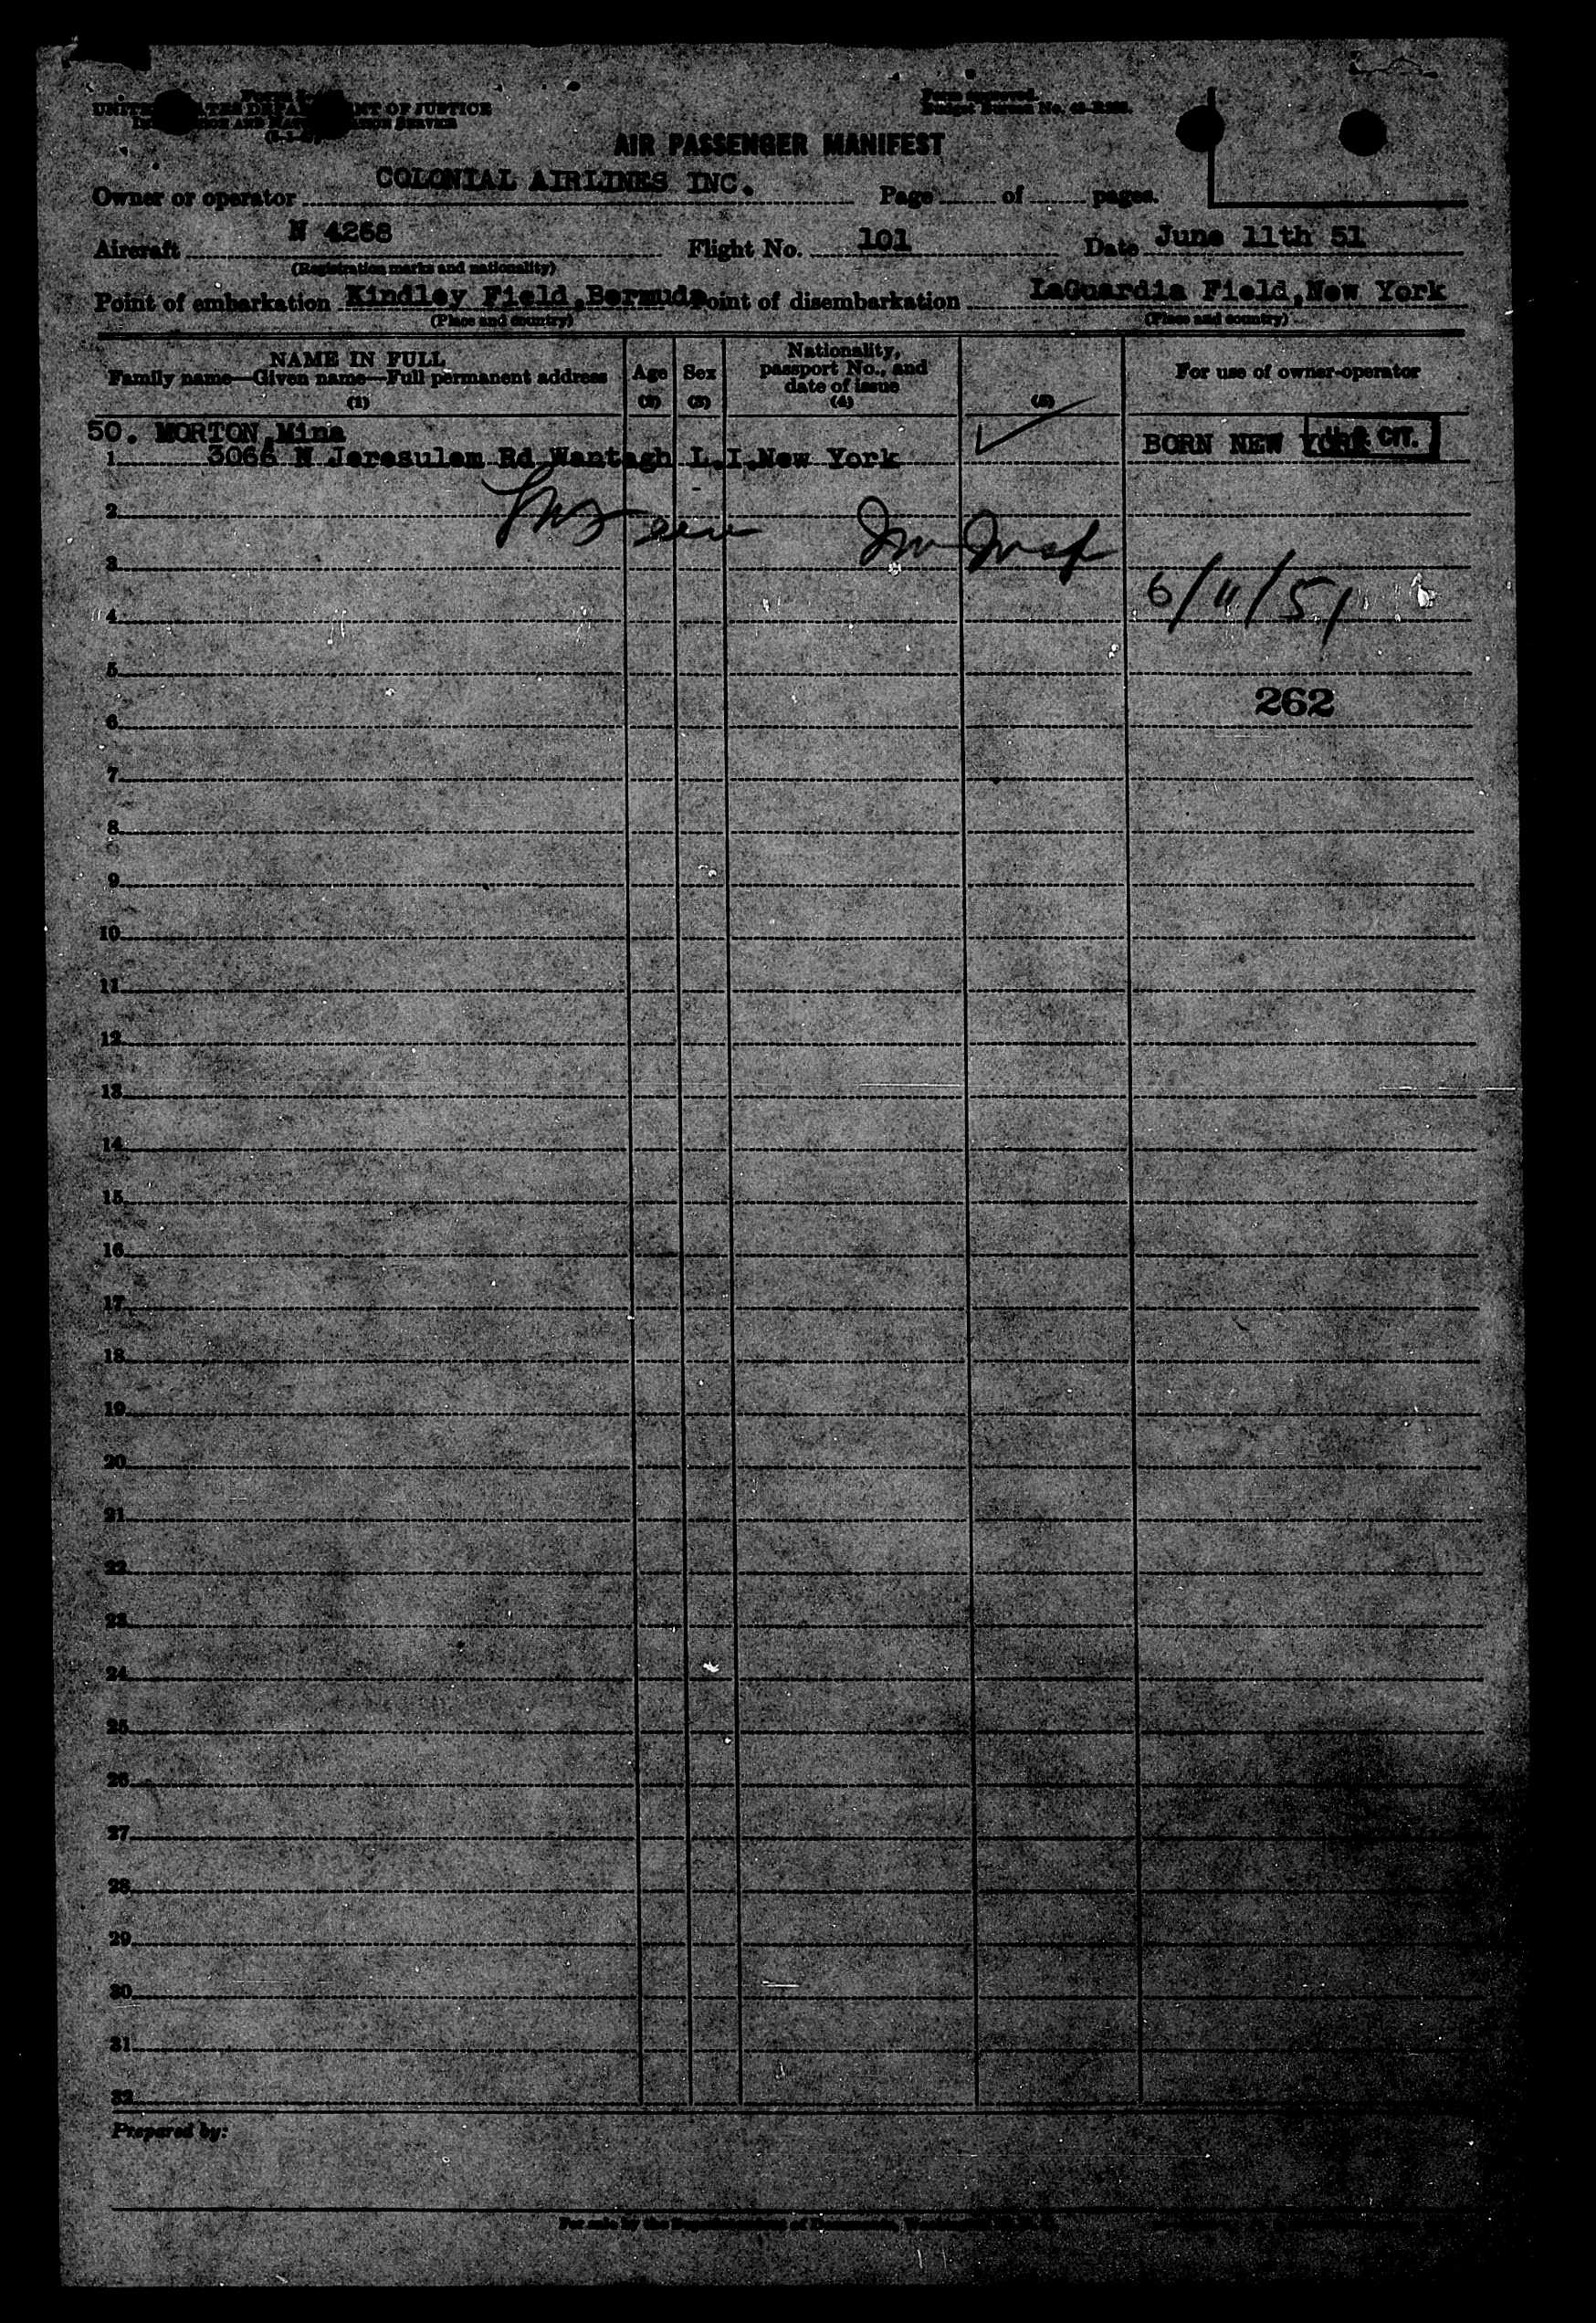 UNITED STATES DEPARTMENT OF JUSTICE
IMMIGRATION AND NATURALIZATION SERVICE
Form approved.
Budget Bureau No.
AIR PASSENGER MANIFEST
Owner or operator COLONIAL AIRLINES INC. Page of pages.
Aircraft N 4268 Flight No. 101 Date June 11th 51
(Registration marks and nationality)
Point of embarkation Kindley Field,Bermuda Point of disembarkation LaGuardia Field,New York
(Place and country) (Place and country)
NAME IN FULL
Family name—Given name—Full permanent address
(1)
Age
(2)
Sex
(3)
Nationality,
passport No., and
date of issue
(4)
(5)
For use of owner-operator
50. MORTON,Mina
BORN NEW YORK U S CIT.
1 3066 N Jeresulem Rd Wantagh L.I.New York
2
3
6/11/51
4
5
262
6
7
8
9
10
11
12
13
14
15
16
17
18
19
20
21
22
23
24
25
26
27
28
29
30
31
32
Prepared by: